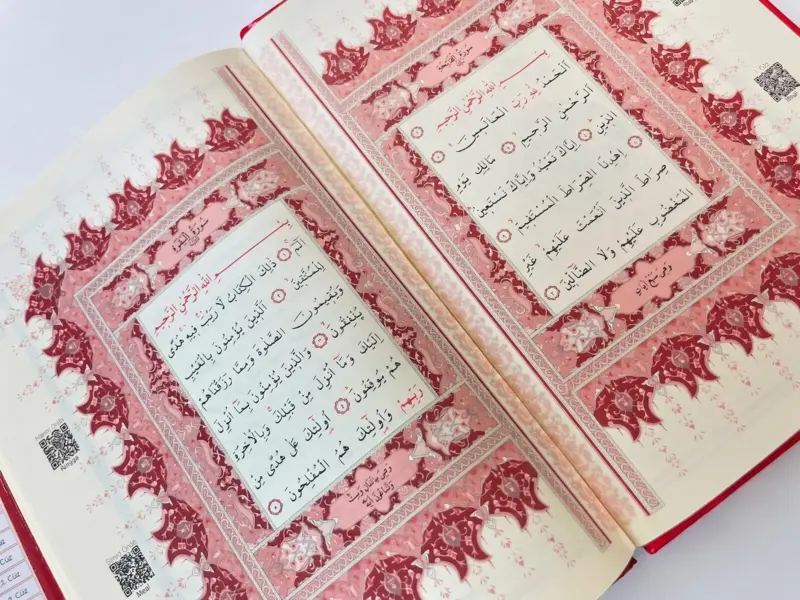 سُورَةُ الْفَاتِحَةِ
بِسْمِ اللّٰهِ الرَّحْمٰنِ الرَّحِيمِ ١
اَلْحَمْدُ لِلّٰهِ رَبِّ الْعَالَمِينَ ٢
اَلرَّحْمٰنِ الرَّحِيمِ ٣ مَالِكِ يَوْمِ
الدِّينِ ٤ اِيَّاكَ نَعْبُدُ وَاِيَّاكَ نَسْتَعِينُ ٥
اِهْدِنَا الصِّرَاطَ الْمُسْتَقِيمَ ٦
صِرَاطَ الَّذِينَ اَنْعَمْتَ عَلَيْهِمْ غَيْرِ
الْمَغْضُوبِ عَلَيْهِمْ وَلَا الضَّالِّينَ ٧
وَهِيَ سَبْعُ اٰيَاتٍ
سُورَةُ الْبَقَرَةِ
بِسْمِ اللّٰهِ الرَّحْمٰنِ الرَّحِيمِ
الٓمٓ ١ ذٰلِكَ الْكِتَابُ لَا رَيْبَ فِيهِ هُدًى
لِلْمُتَّقِينَ ٢ اَلَّذِينَ يُؤْمِنُونَ بِالْغَيْبِ
وَيُقِيمُونَ الصَّلٰوةَ وَمِمَّا رَزَقْنَاهُمْ
يُنْفِقُونَ ٣ وَالَّذِينَ يُؤْمِنُونَ بِمَا اُنْزِلَ
اِلَيْكَ وَمَا اُنْزِلَ مِنْ قَبْلِكَ وَبِالْاٰخِرَةِ
هُمْ يُوقِنُونَ ٤ اُولٰئِكَ عَلٰى هُدًى مِنْ
رَبِّهِمْ وَاُولٰئِكَ هُمُ الْمُفْلِحُونَ ٥
Meal
Cüz
Cüz
Cüz
Cüz